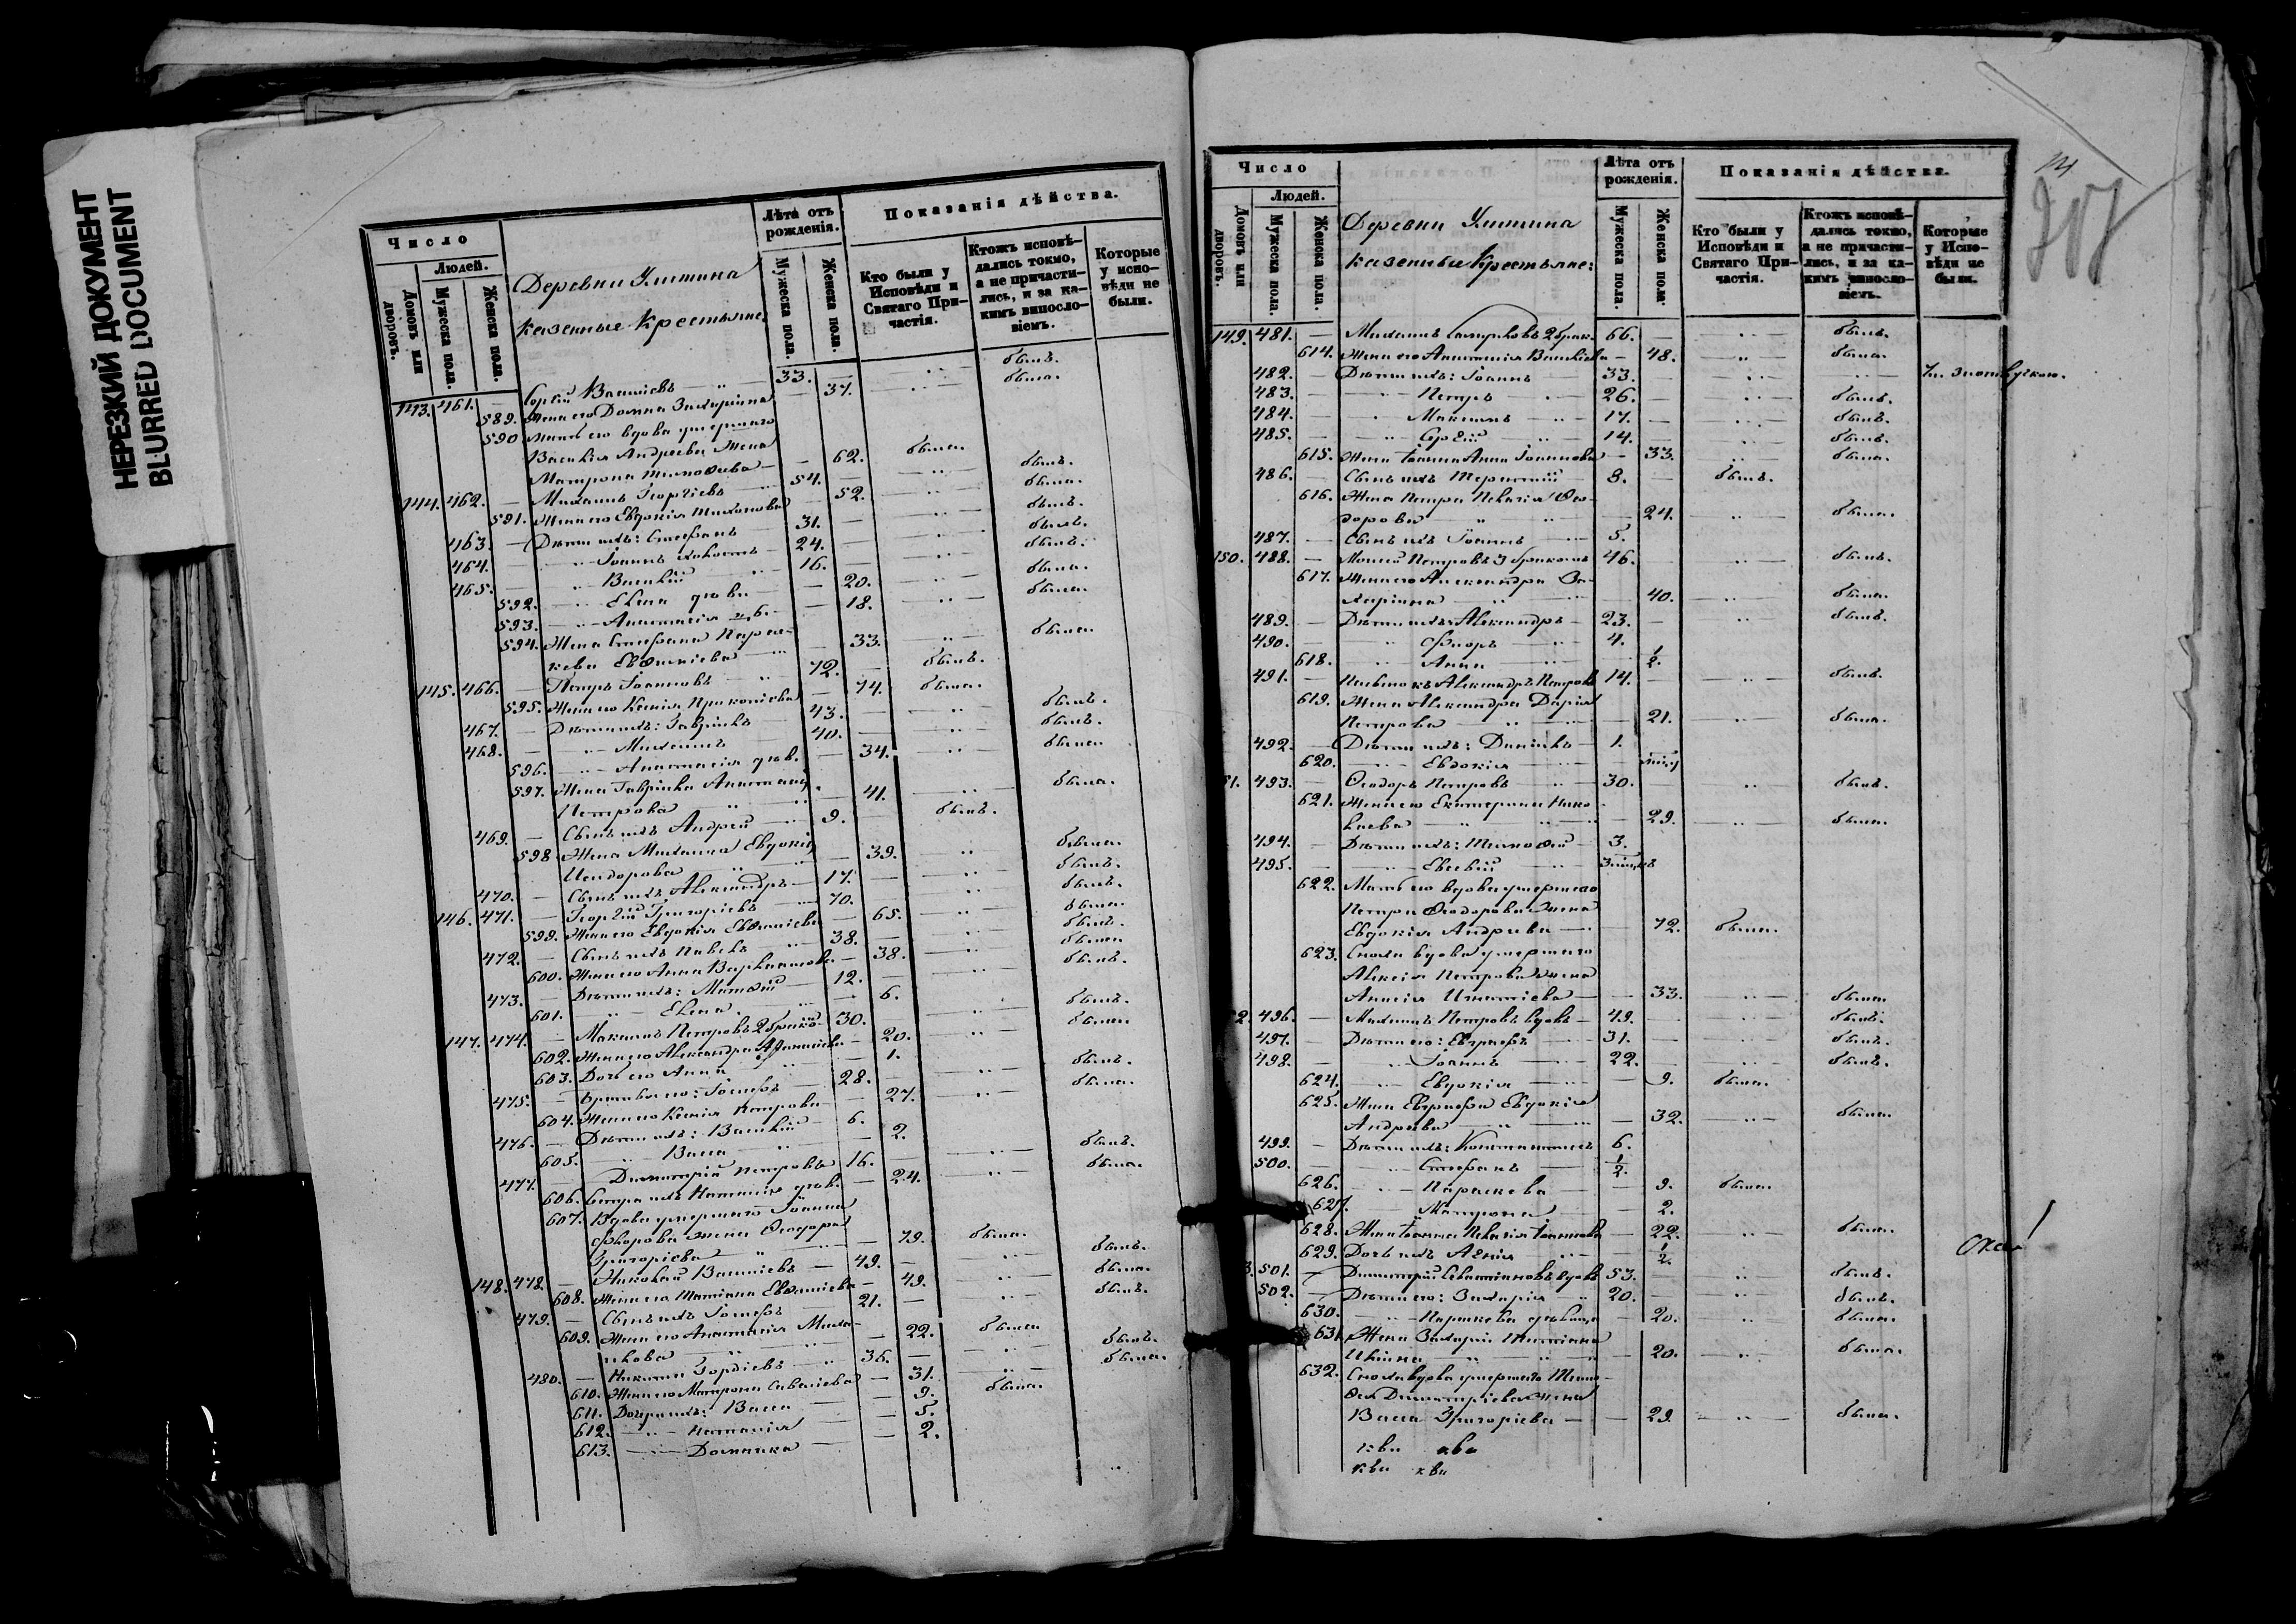 НЕРЕЗКИЙ ДОКУМЕНТ
BLURRED DOCUMENT
Число
Людей.
Домовъ или дворовъ.
Мужеска пола.
Женска пола.
Деревни
казенные Крестьяне
Лѣта отъ рожденія.
Мужеска пола.
Женска пола.
Показанія дѣйства.
Кто были у Исповѣди и Святаго Причастія.
Ктожъ исповѣдались токмо, а не причастились, и за какимъ винословіемъ.
Которые у исповѣди не были.
143. 461. — Василіевъ — 33. — былъ.
589. Жена его Домна Захаріина — 37. была.
590 Мать его вдова умершаго
Василія Андреева Жена
Матрона Тимоѳеева — 62. была.
144. 462. — Михаилъ Георгіевъ — 54. — былъ.
591. Жена его Евдокія Тихонова — 52. была.
463. — Дѣти ихъ: Стефанъ 31. — былъ.
464. — Іоаннъ холостъ — 24. — былъ.
465. — Василій 16. — былъ.
592. — Елена дѣв. — 20. была.
593. — Анастасія — 18. была.
594. Жена Стефана Парас-
кева Евѳиміева — 33. была.
145. 466. — Петръ Іоанновъ — 72. — былъ.
595. Жена его Ксенія Прокопіева — 74. была.
467. — Дѣти ихъ: Гавріилъ — 43. — былъ.
468. — Михаилъ 40. — былъ.
596. — Анастасія дѣв. — 34. была.
597. Жена Гавріила
Петрова — 41. была.
469. — Сынъ ихъ Андрей — 9. — былъ.
598. Жена Михаила Евдокія
Исидорова — 39. была.
470. — Сынъ ихъ Александръ — 17. — былъ.
146. 471. — Георгій Григоріевъ — 70. — былъ.
599. Жена его Евдокія Евѳиміева — 65. была.
472. — Сынъ ихъ Павелъ — 38. — былъ.
600. Жена его Анна Варлаамова — 38. была.
473. — Дѣти ихъ: Матѳей 12. — былъ.
601. — Елена. — 6.
147. 474. — Максимъ Петровъ 2 брако. 30. — былъ.
602. Жена его Александра — 20. была.
603. Дочь его Анна — 1.
475. — Братья его: Іосифъ — 28. — былъ.
604. Жена его Ксенія Петрова — 27. была.
476. — Дѣти ихъ: Василій — 6.
605. — Васса — 2.
477. — Димитрій Петровъ 16. — былъ.
606. Сестра ихъ Наталія дѣв. — 24. была.
607. Вдова умершаго Іоанна
Флорова жена Ѳеодора
Григоріева — 79. была.
148. 478. — Николай Василіевъ — 49. — былъ.
608. Жена его Татіана Евѳиміева — 49. была.
479. — Сынъ ихъ Іосифъ 21. — былъ.
609. Жена его Анастасія Миха-
илова — 22. была
480. — Никита Гордіевъ — 36. — былъ.
610. Жена его Матрона Саваліева — 31. была.
611. Дочери ихъ: Васса — 9. была.
612. — Наталія — 5.
613. — Домника — 2.
Число
Людей.
Домовъ или дворовъ.
Мужеска пола.
Женска пола.
Деревни
казенные Крестьяне:
Лѣта отъ рожденія.
Мужеска пола.
Женска пола.
Показанія дѣйства.
Кто были у Исповѣди и Святаго Причастія.
Ктожъ исповѣдались токмо, а не причастились, и за какимъ винословіемъ.
Которые у Исповѣди не были.
149. 481. — Михаилъ 2 брак. 66. — былъ.
614. Жена его Анастасія Василіева — 48. была.
482. — Дѣти ихъ: Іоаннъ 33. —
483. — Петръ — 26. — былъ.
484. — Максимъ — 17. — былъ.
485. — Сергій — 14. — былъ.
615. Жена Іоанна Анна Іоаннова — 33. была.
486. — Сынъ ихъ Терентій 8. — былъ.
616. Жена Петра Пелагія Ѳео-
дорова — 24. была.
487. — Сынъ ихъ Іоаннъ — 5.
150. 488. — Моисей Петровъ 3 бракомъ 46. — былъ.
617. Жена его Александра За-
харіина — 40. была.
489. — Дѣти ихъ: Александръ — 23. — былъ.
490. — Флоръ — 4.
618. — Анна — 1/2.
491. — Александръ Петровъ 14. — былъ.
619. Жена Александра Дарія
Петрова — 21. была.
492. — Дѣти ихъ: Даніилъ — 1.
620. — Евдокія —
493. — Ѳеодоръ Петровъ — 30. — былъ.
621. Жена его Екатерина Нико-
лаева — 29. была.
494. — Дѣти ихъ: Тимоѳей — 3.
495. — Евсевій
622. Мать его вдова умершаго
Петра Ѳеодорова жена
Евдокія Андреева — 72. была.
623. Сноха вдова умершаго
Алексія Петрова жена
Анисія Игнатіева — 33. была.
496. — Михаилъ Петровъ вдовъ — 49. — былъ.
497. — Дѣти его: Евграфъ 31. — былъ.
498. — Іоаннъ 22. — былъ.
624. — Евдокія — 9. была.
625. Жена Евграфа Евдокія
Андреева — 32. была.
499. — Дѣти ихъ: Константинъ 6.
500. — Стефанъ 1/2.
626. — Параскева — 9. была.
627. — Матрона — 2.
628. Жена Іоанна Пелагія Іоаннова — 22. была.
629. Дочь ихъ Агнія — 1/2.
501. — Димитрій Севастіановъ вдовъ 53. — былъ.
502. — Дѣти его: Захарія 20. — былъ.
630. — Параскева дѣвица — 20. была.
631. Жена Захаріи Татіана
Иліина — 20. была.
632. Сноха вдова умершаго Тимо-
ѳея Димитріева жена
Васса Григоріева — 29. была.